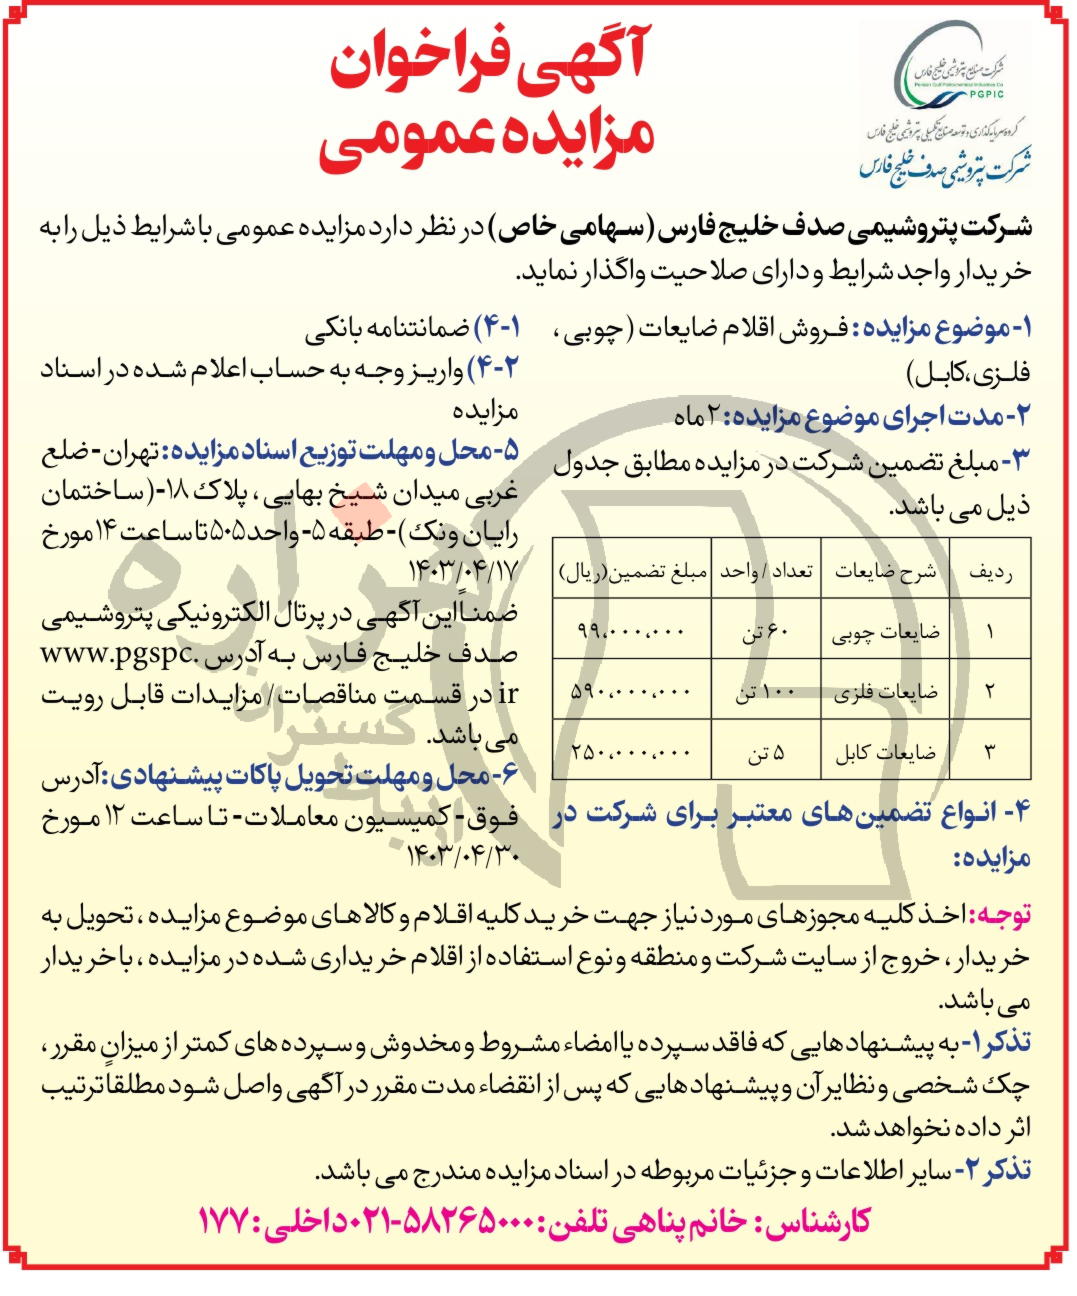 آگهی فراخوان
مزایده عمومی
شرکت صنایع پتروشیمی خلیج فارس
Persian Gulf Petrochemical Industries Co
PGPIC
گروه سرمایه‌گذاری و توسعه صنایع تکمیلی پتروشیمی خلیج فارس
شرکت پتروشیمی صدف خلیج فارس
شرکت پتروشیمی صدف خلیج فارس (سهامی خاص) در نظر دارد مزایده عمومی با شرایط ذیل را به
خریدار واجد شرایط و دارای صلاحیت واگذار نماید.
۱- موضوع مزایده: فروش اقلام ضایعات (چوبی،
فلزی،کابل)
۲- مدت اجرای موضوع مزایده: ۲ ماه
۳- مبلغ تضمین شرکت در مزایده مطابق جدول
ذیل می باشد.
ردیف شرح ضایعات تعداد / واحد مبلغ تضمین(ریال)
۱ ضایعات چوبی ۶۰ تن ۹۹،۰۰۰،۰۰۰
۲ ضایعات فلزی ۱۰۰ تن ۵۹۰،۰۰۰،۰۰۰
۳ ضایعات کابل ۵ تن ۲۵۰،۰۰۰،۰۰۰
۴- انواع تضمین‌های معتبر برای شرکت در
مزایده:
۴-۱) ضمانتنامه بانکی
۴-۲) واریز وجه به حساب اعلام شده در اسناد
مزایده
۵- محل و مهلت توزیع اسناد مزایده: تهران- ضلع
غربی میدان شیخ بهایی، پلاک ۱۸-(ساختمان
رایان ونک)- طبقه ۵- واحد ۵۰۵ تا ساعت ۱۴ مورخ
۱۴۰۳/۰۴/۱۷
ضمناً این آگهی در پرتال الکترونیکی پتروشیمی
صدف خلیج فارس به آدرس www.pgspc.
ir در قسمت مناقصات/ مزایدات قابل رویت
می باشد.
۶- محل و مهلت تحویل پاکات پیشنهادی: آدرس
فوق- کمیسیون معاملات- تا ساعت ۱۲ مورخ
۱۴۰۳/۰۴/۳۰
توجه: اخذ کلیه مجوزهای مورد نیاز جهت خرید کلیه اقلام و کالاهای موضوع مزایده، تحویل به
خریدار، خروج از سایت شرکت و منطقه و نوع استفاده از اقلام خریداری شده در مزایده، با خریدار
می باشد.
تذکر ۱- به پیشنهادهایی که فاقد سپرده یا امضاء مشروط و مخدوش و سپرده های کمتر از میزان مقرر،
چک شخصی و نظایر آن و پیشنهادهایی که پس از انقضاء مدت مقرر در آگهی واصل شود مطلقا ترتیب
اثر داده نخواهد شد.
تذکر ۲- سایر اطلاعات و جزئیات مربوطه در اسناد مزایده مندرج می باشد.
کارشناس: خانم پناهی تلفن: ۵۸۲۶۵۰۰۰-۰۲۱ داخلی: ۱۷۷
هزاره
گستران
ارتباط